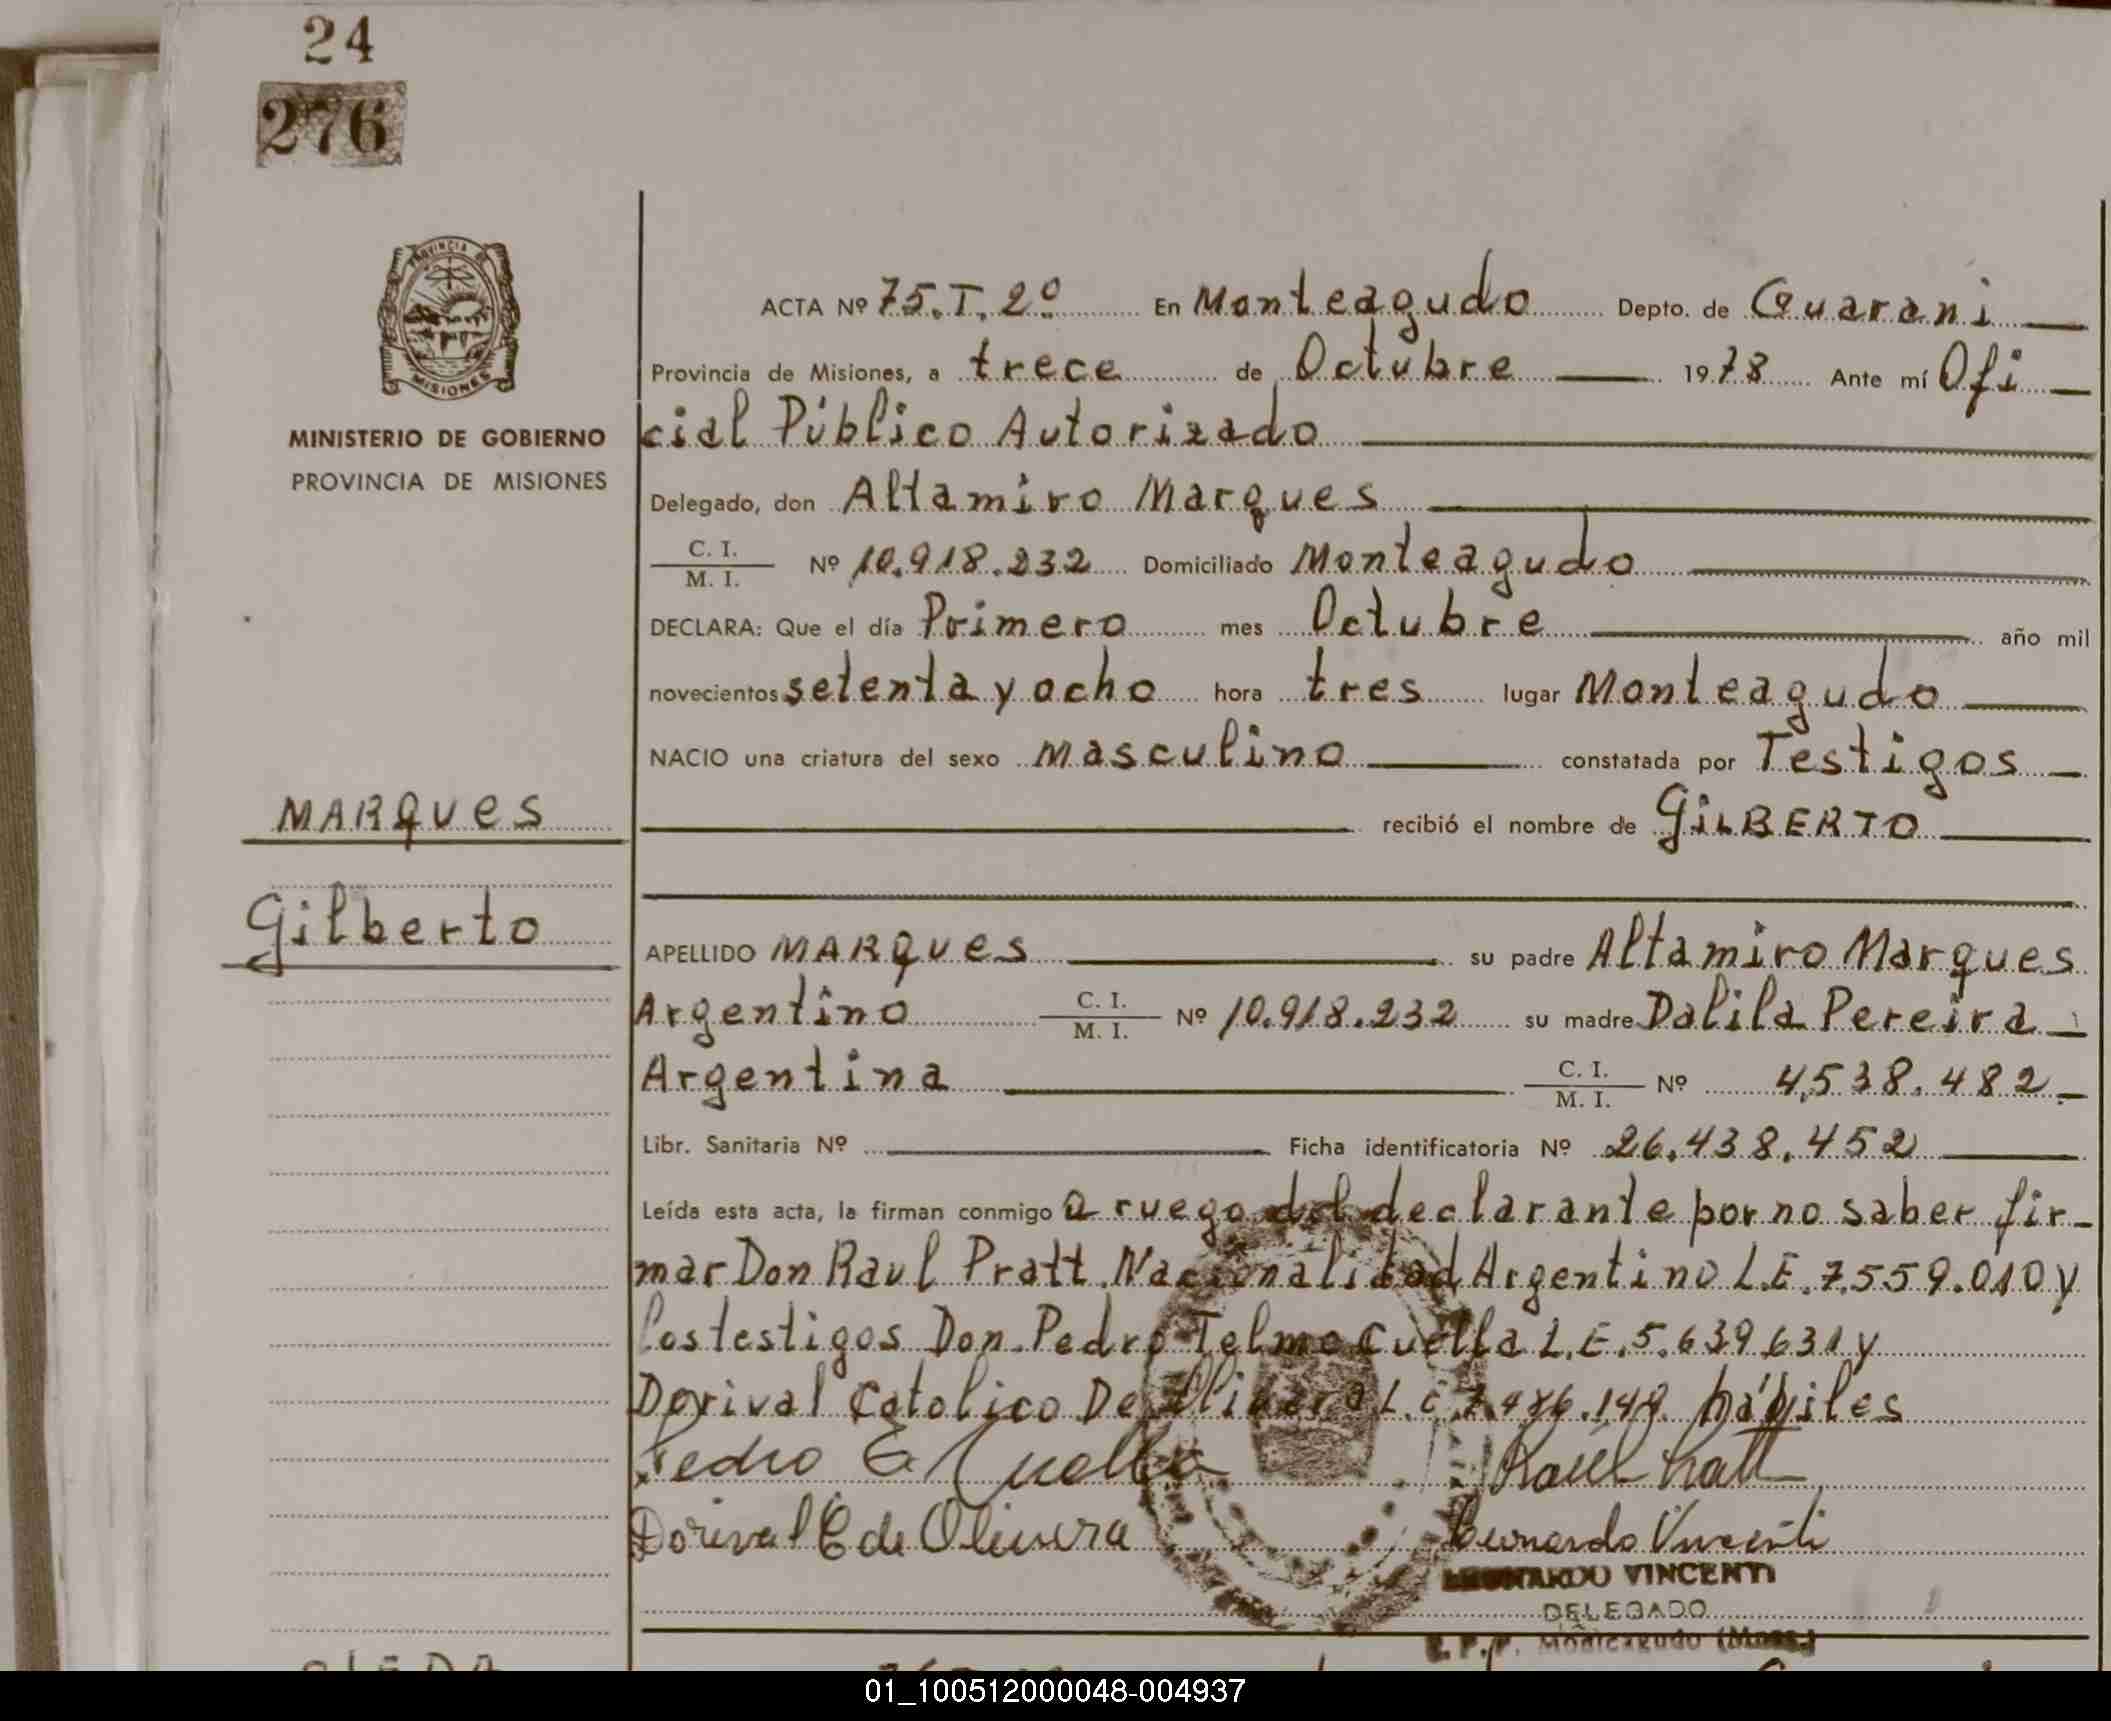 24
276
PROVINCIA DE
MISIONES
MINISTERIO DE GOBIERNO
PROVINCIA DE MISIONES
MARques
Gilberto
ACTA Nº 75.T.2º En Monteagudo Depto. de Guarani
Provincia de Misiones, a trece de Octubre 1978 Ante mí Ofi
cial Público Autorizado
Delegado, don Altamiro Marques
C. I.
M. I. Nº 10.918.232 Domiciliado Monteagudo
DECLARA: Que el día Primero mes Octubre año mil
novecientos setenta y ocho hora tres lugar Monteagudo
NACIO una criatura del sexo Masculino constatada por Testigos
recibió el nombre de GiLBERTO
APELLIDO MARques su padre Altamiro Marques
Argentino C. I. M. I. Nº 10.918.232 su madre Dalila Pereira
Argentina C. I. M. I. Nº 4,538.482
Libr. Sanitaria Nº Ficha identificatoria Nº 26.438.452
Leída esta acta, la firman conmigo a ruego del declarante por no saber fir-
mar Don Raul Pratt Nacionalidad Argentino L.E. 7.559.010 y
los testigos Don Pedro Telmo Cuella L.E. 5.639.631 y
Dorival Catolico De Olivera hábiles
Pedro Cuella
Dorival C de Olivera
VINCENTI
DELEGADO
01_100512000048-004937